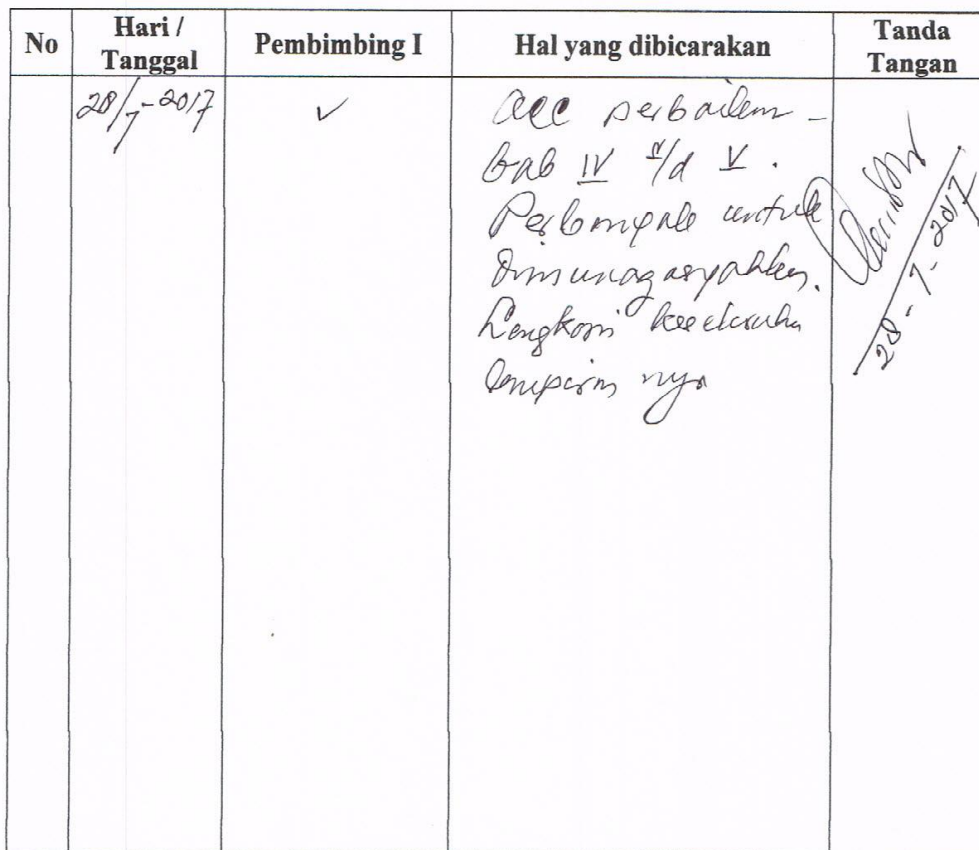 No
Hari /
Tanggal
Pembimbing I
Hal yang dibicarakan
Tanda
Tangan
28/7-2017
✓
acc perbaikan -
bab IV s/d V.
untuk
dimunaqasyahkan.
Lengkapi
nya
28-7-2017